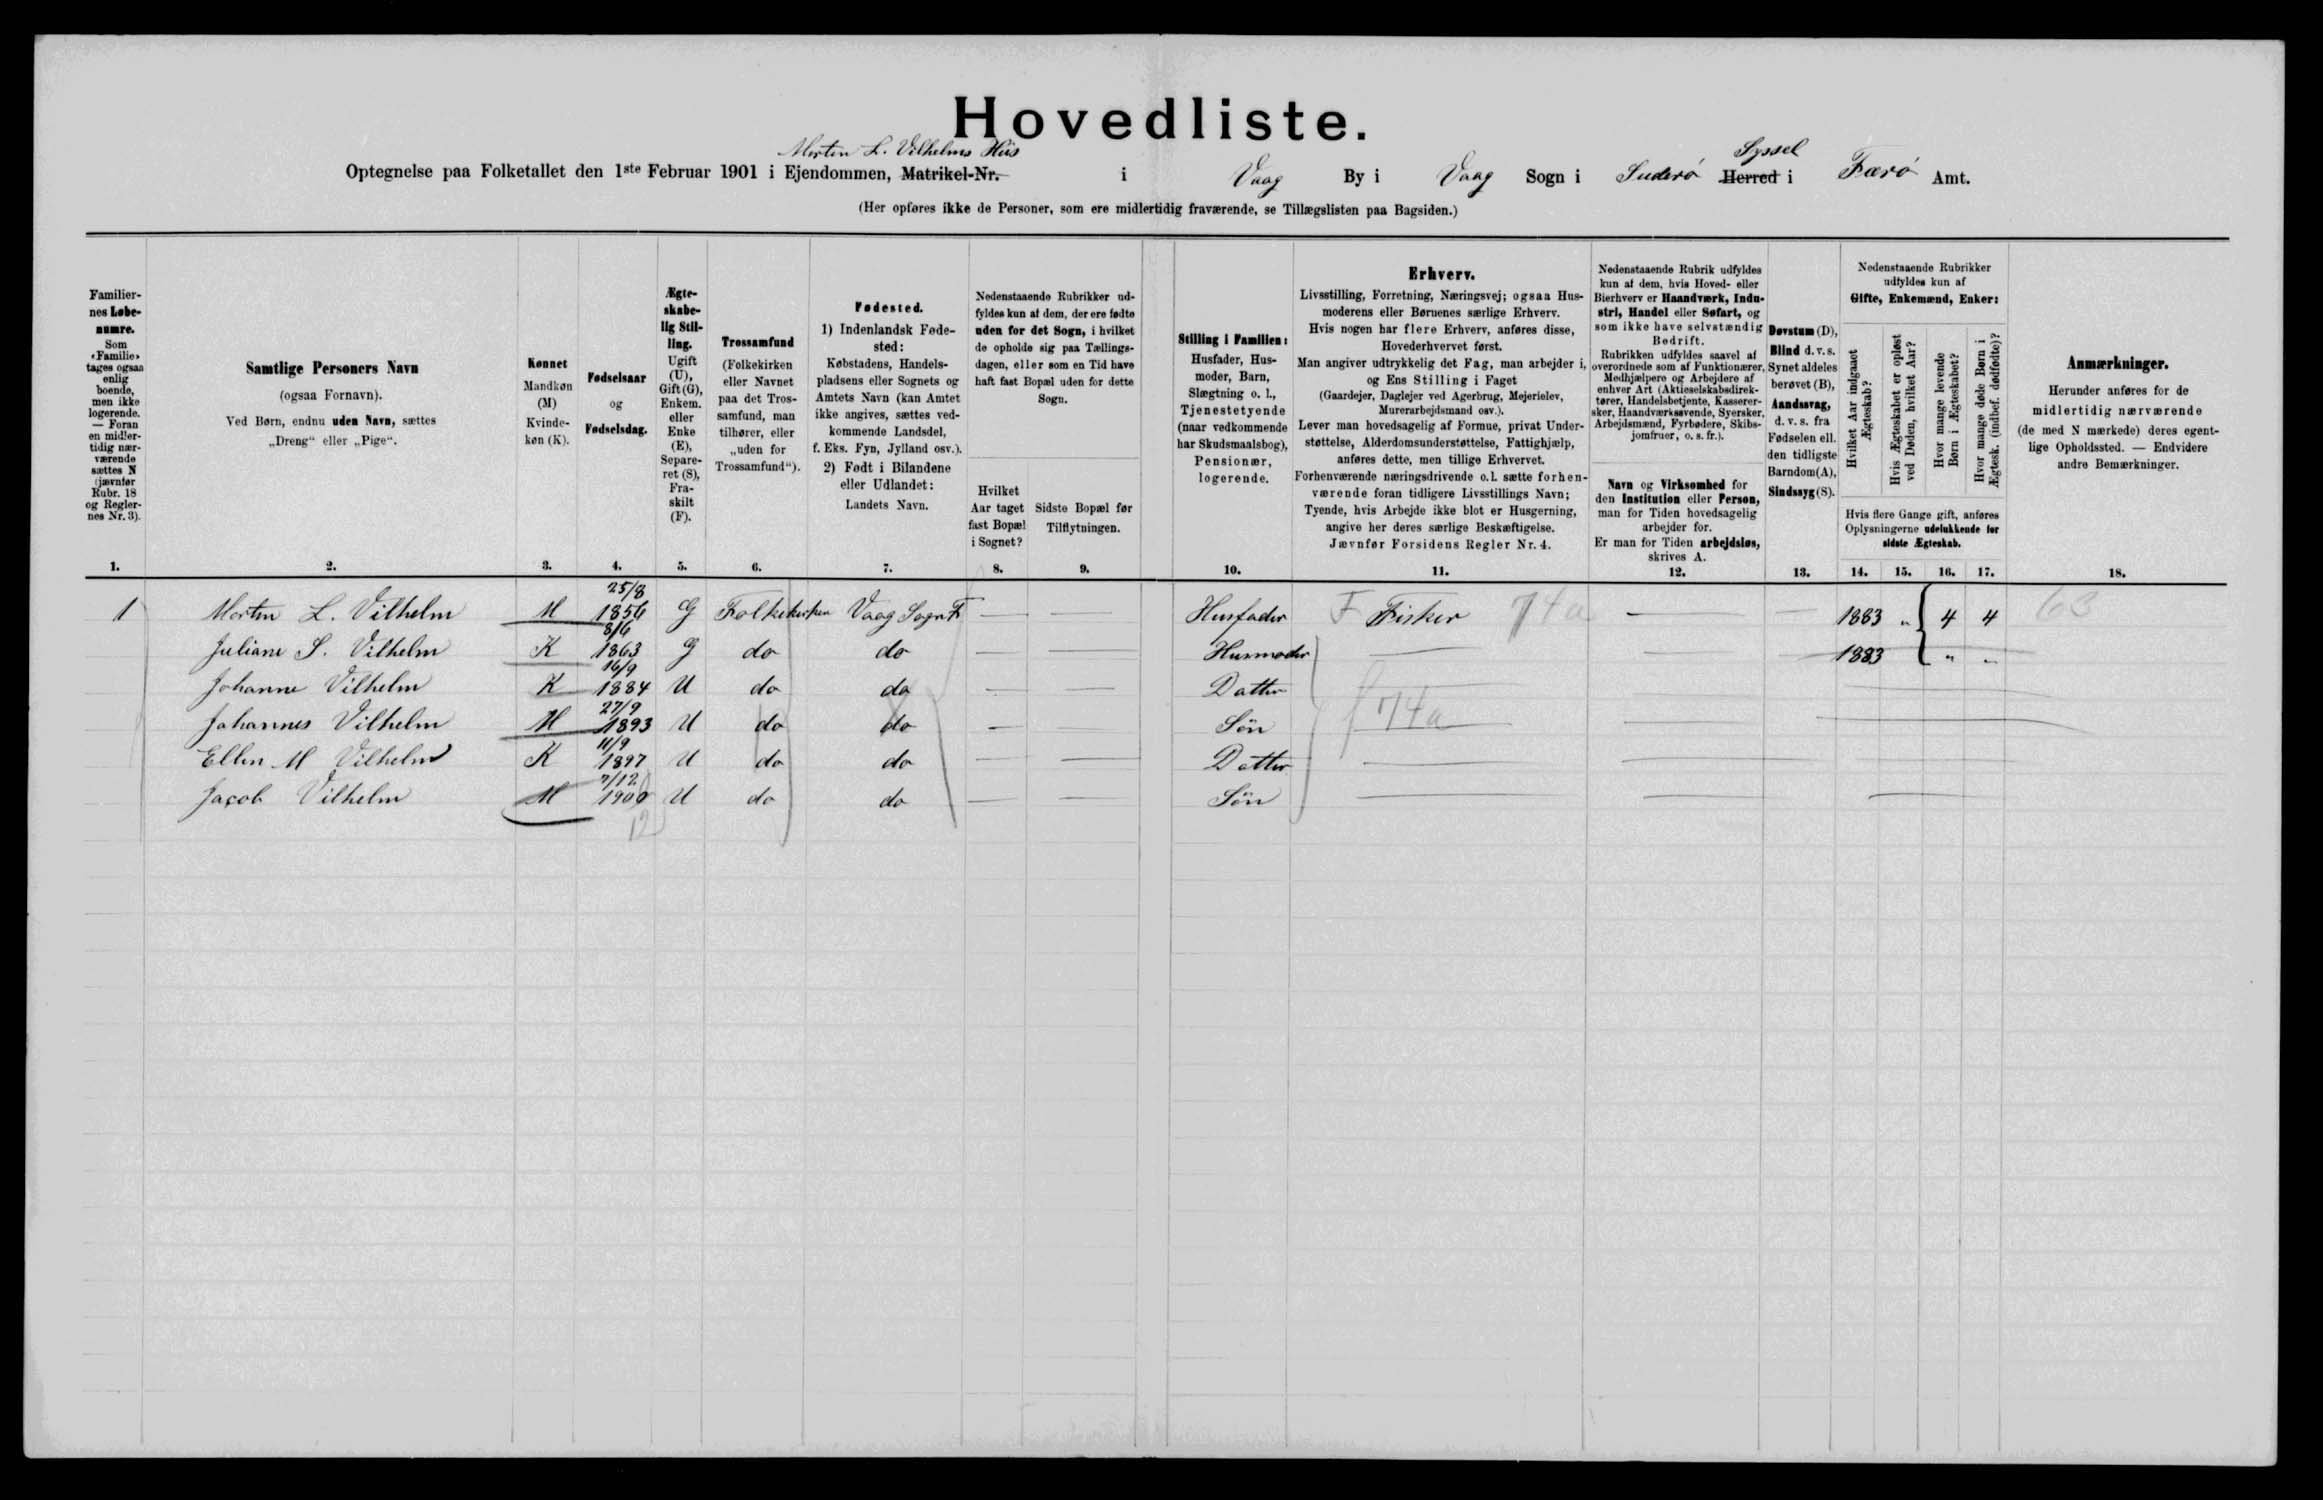 Hovedliste.
Morten L. Vilhelms Hüs Syssel
Optegnelse paa Folketallet den 1ste Februar 1901 i Ejendommen, Matrikel-Nr. i Vaag By i Vaag Sogn i Suderø Herred i Færø Amt.
(Her opføres ikke de Personer, som ere midlertidig fraværende, se Tillægslisten paa Bagsiden.)
Familier-
nes Løbe-
numre.
Som
«Familie»
tages ogsaa
enlig
boende,
men ikke
logerende.
— Foran
en midler-
tidig nær-
værende
sættes N
(jævnfør
Rubr. 18
og Regler-
nes Nr. 3).
1.
Samtlige Personers Navn
(ogsaa Fornavn).
Ved Børn, endnu uden Navn, sættes
„Dreng“ eller „Pige“.
2.
Kønnet
Mandkøn
(M)
Kvinde-
køn (K).
3.
Fødselsaar
og
Fødselsdag.
4.
Ægte-
skabe-
lig Stil-
ling.
Ugift
(U),
Gift (G),
Enkem.
eller
Enke
(E),
Separe-
ret (S),
Fra-
skilt
(F).
5.
Trossamfund
(Folkekirken
eller Navnet
paa det Tros-
samfund, man
tilhører, eller
„uden for
Trossamfund“).
6.
Fødested.
1) Indenlandsk Føde-
sted:
Købstadens, Handels-
pladsens eller Sognets og
Amtets Navn (kan Amtet
ikke angives, sættes ved-
kommende Landsdel,
f. Eks. Fyn, Jylland osv.).
2) Født i Bilandene
eller Udlandet:
Landets Navn.
7.
Nedenstaaende Rubrikker ud-
fyldes kun af dem, der ere fødte
uden for det Sogn, i hvilket
de opholde sig paa Tællings-
dagen, eller som en Tid have
haft fast Bopæl uden for dette
Sogn.
Hvilket
Aar taget
fast Bopæl
i Sognet?
8.
Sidste Bopæl før
Tilflytningen.
9.
Stilling i Familien:
Husfader, Hus-
moder, Barn,
Slægtning o. l.,
Tjenestetyende
(naar vedkommende
har Skudsmaalsbog),
Pensionær,
logerende.
10.
Erhverv.
Livsstilling, Forretning, Næringsvej; ogsaa Hus-
moderens eller Børnenes særlige Erhverv.
Hvis nogen har flere Erhverv, anføres disse,
Hovederhvervet først.
Man angiver udtrykkelig det Fag, man arbejder i,
og Ens Stilling i Faget
(Gaardejer, Daglejer ved Agerbrug, Mejerielev,
Murerarbejdsmand osv.).
Lever man hovedsagelig af Formue, privat Under-
støttelse, Alderdomsunderstøttelse, Fattighjælp,
anføres dette, men tillige Erhvervet.
Forhenværende næringsdrivende o.l. sætte forhen-
værende foran tidligere Livsstillings Navn;
Tyende, hvis Arbejde ikke blot er Husgerning,
angive her deres særlige Beskæftigelse.
Jævnfør Forsidens Regler Nr. 4.
11.
Nedenstaaende Rubrik udfyldes
kun af dem, hvis Hoved- eller
Bierhverv er Haandværk, Indu-
stri, Handel eller Søfart, og
som ikke have selvstændig
Bedrift.
Rubrikken udfyldes saavel af
overordnede som af Funktionærer,
Medhjælpere og Arbejdere af
enhver Art (Aktieselskabsdirek-
tører, Handelsbetjente, Kasserer-
sker, Haandværkssvende, Syersker,
Arbejdsmænd, Fyrbødere, Skibs-
jomfruer, o. s. fr.).
Navn og Virksomhed for
den Institution eller Person,
man for Tiden hovedsagelig
arbejder for.
Er man for Tiden arbejdsløs,
skrives A.
12.
Døvstum (D),
Blind d. v. s.
Synet aldeles
berøvet (B),
Aandssvag,
d. v. s. fra
Fødselen ell.
den tidligste
Barndom(A),
Sindssyg(S).
13.
Nedenstaaende Rubrikker
udfyldes kun af
Gifte, Enkemænd, Enker:
Hvilket Aar indgaaet
Ægteskab?
Hvis Ægteskabet er opløst
ved Døden, hvilket Aar?
Hvor mange levende
Børn i Ægteskabet?
Hvor mange døde Børn i
Ægtesk. (indbef. dødfødte)?
Hvis flere Gange gift, anføres
Oplysningerne udelukkende for
sidste Ægteskab.
14. 15. 16. 17.
Anmærkninger.
Herunder anføres for de
midlertidig nærværende
(de med N mærkede) deres egent-
lige Opholdssted. — Endvidere
andre Bemærkninger.
18.
1 Morten L. Vilhelm M 25/8 1856 G Folkekirken Vaag Sogn F — — Husfader F Fisker 74a — — 1883 " 4 4 63
Juliane S. Vilhelm K 8/6 1863 G do do — — Husmoder — — 1883 " "
Johanne Vilhelm K 16/9 1884 U do do — — Datter — —
Johannes Vilhelm M 27/9 1893 U do do — Sön 74a — —
Ellen M Vilhelm K 11/9 1897 U do do — — Datter — — —
Jacob Vilhelm M 7/12 1900 U do do — — Sön — — —
12